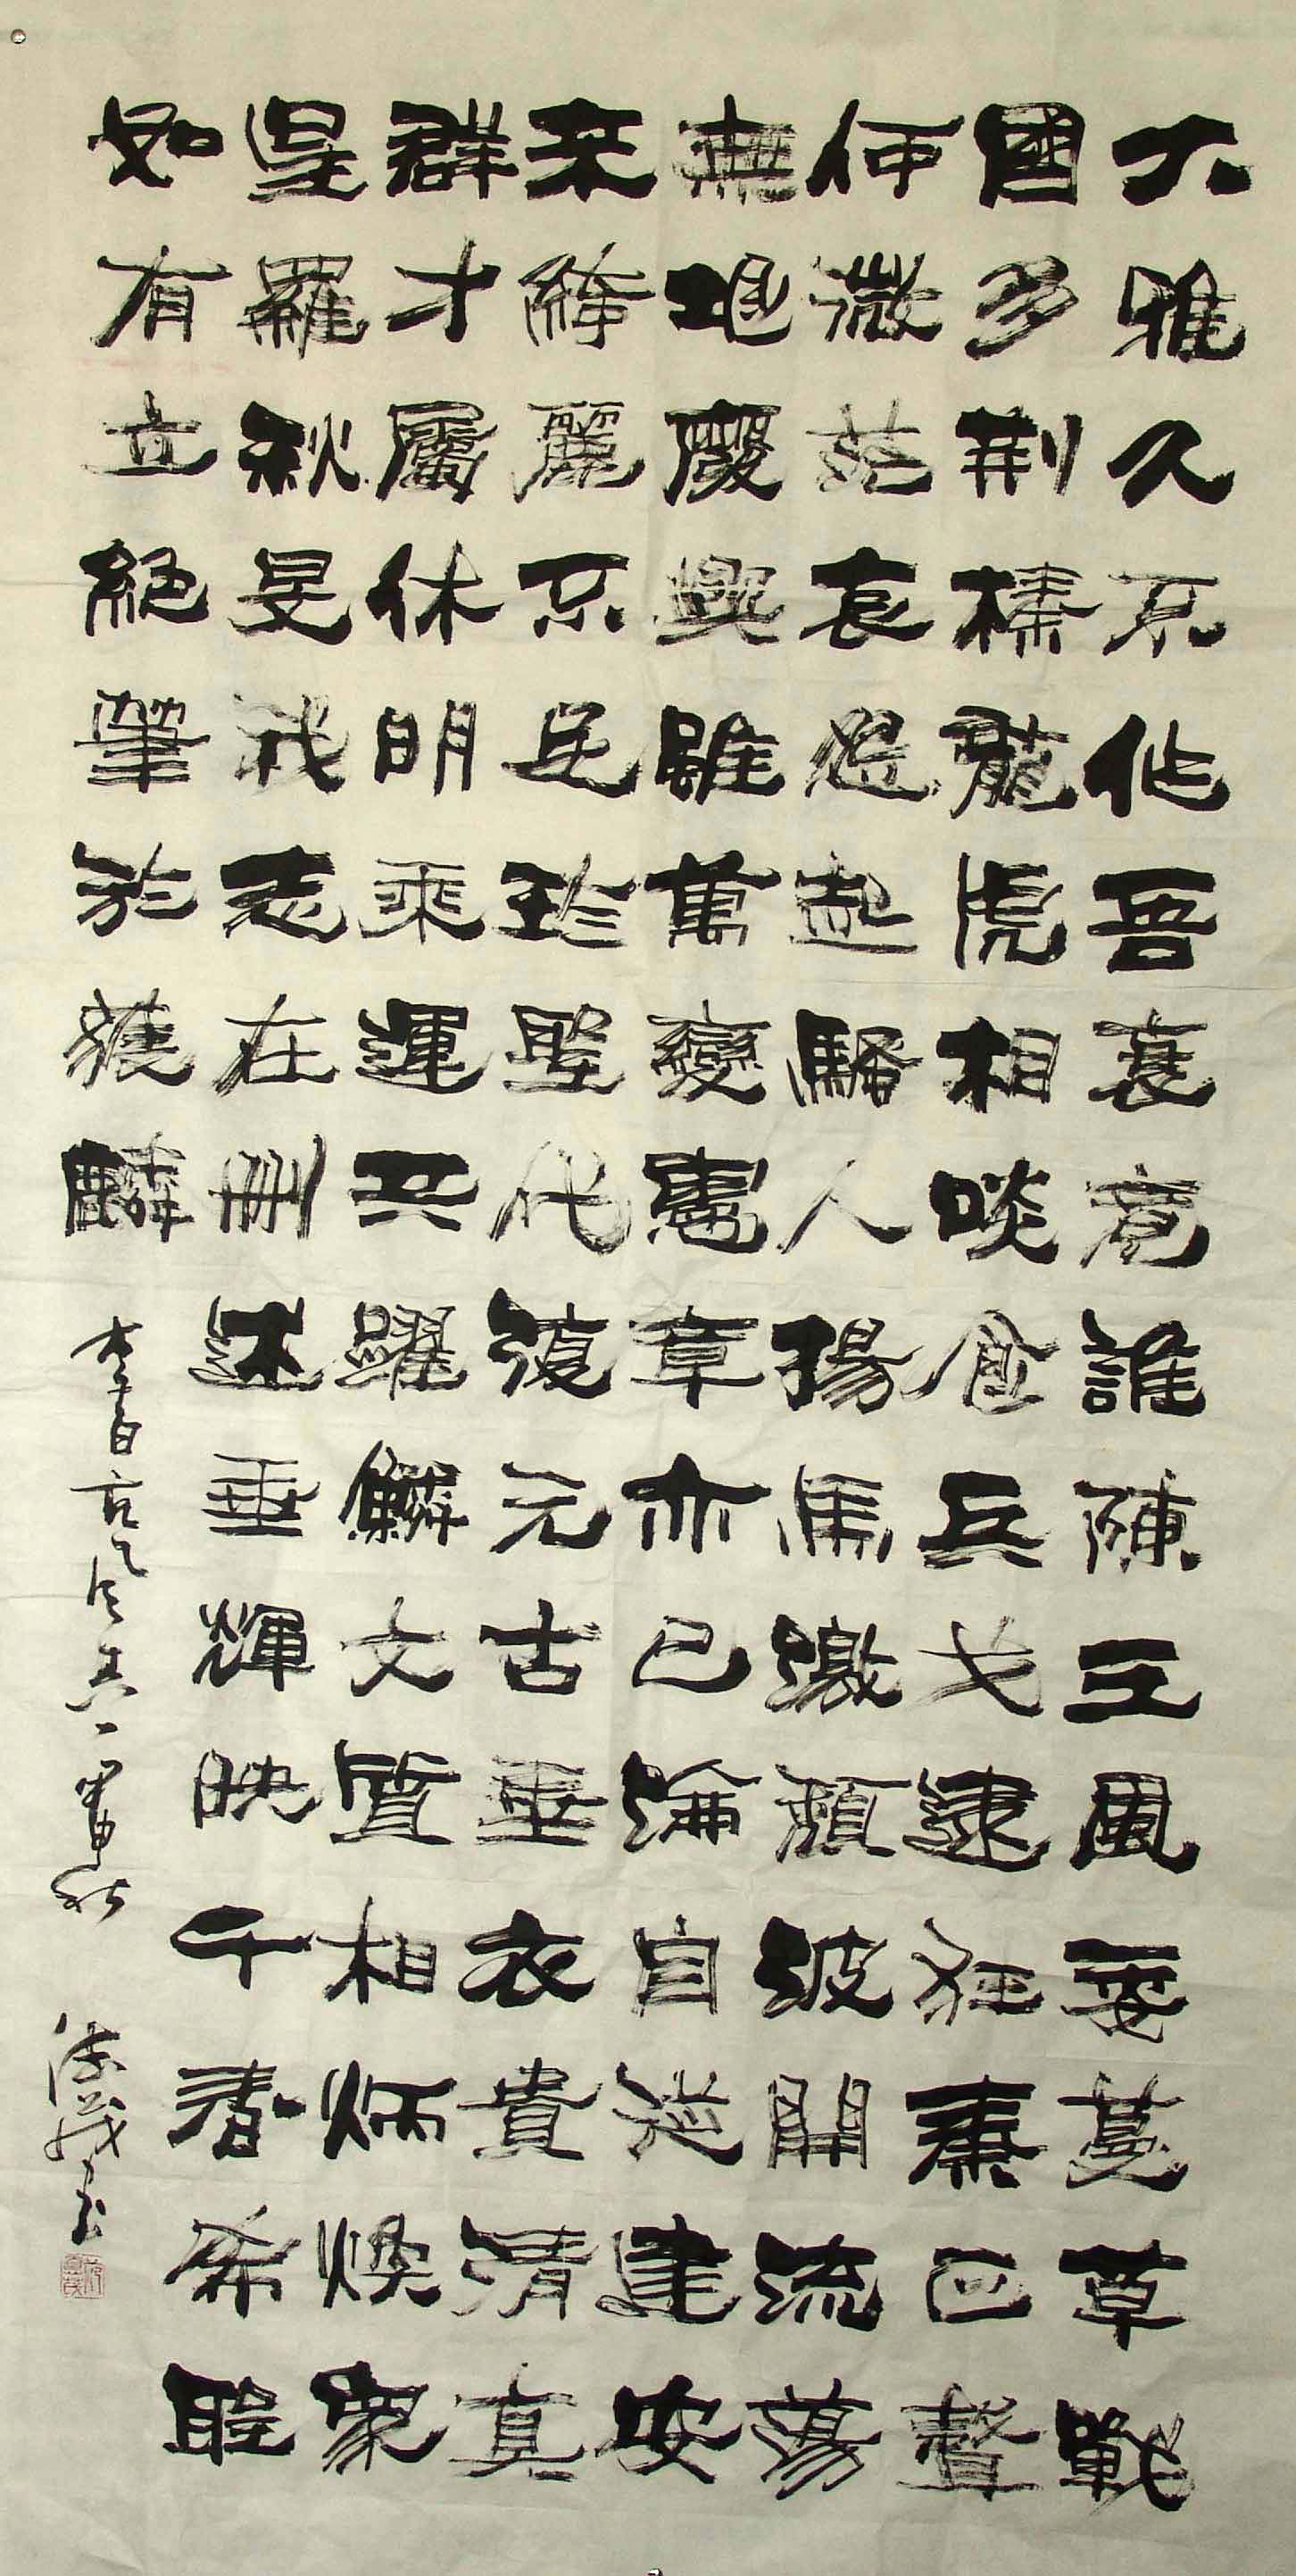 大雅久不作吾衰竟誰陳王風委蔓草戰
國多荊榛龍虎相啖食兵戈逮狂秦正聲
何微茫哀怨起騷人揚馬激頹波開流蕩
無垠廢興雖萬變憲章亦已淪自從建安
來綺麗不足珍聖代復元古垂衣貴清真
群才屬休明乘運共躍鱗文質相炳煥眾
星羅秋旻我志在刪述垂輝映千春希聖
如有立絕筆於獲麟
李白古風其一甲申秋